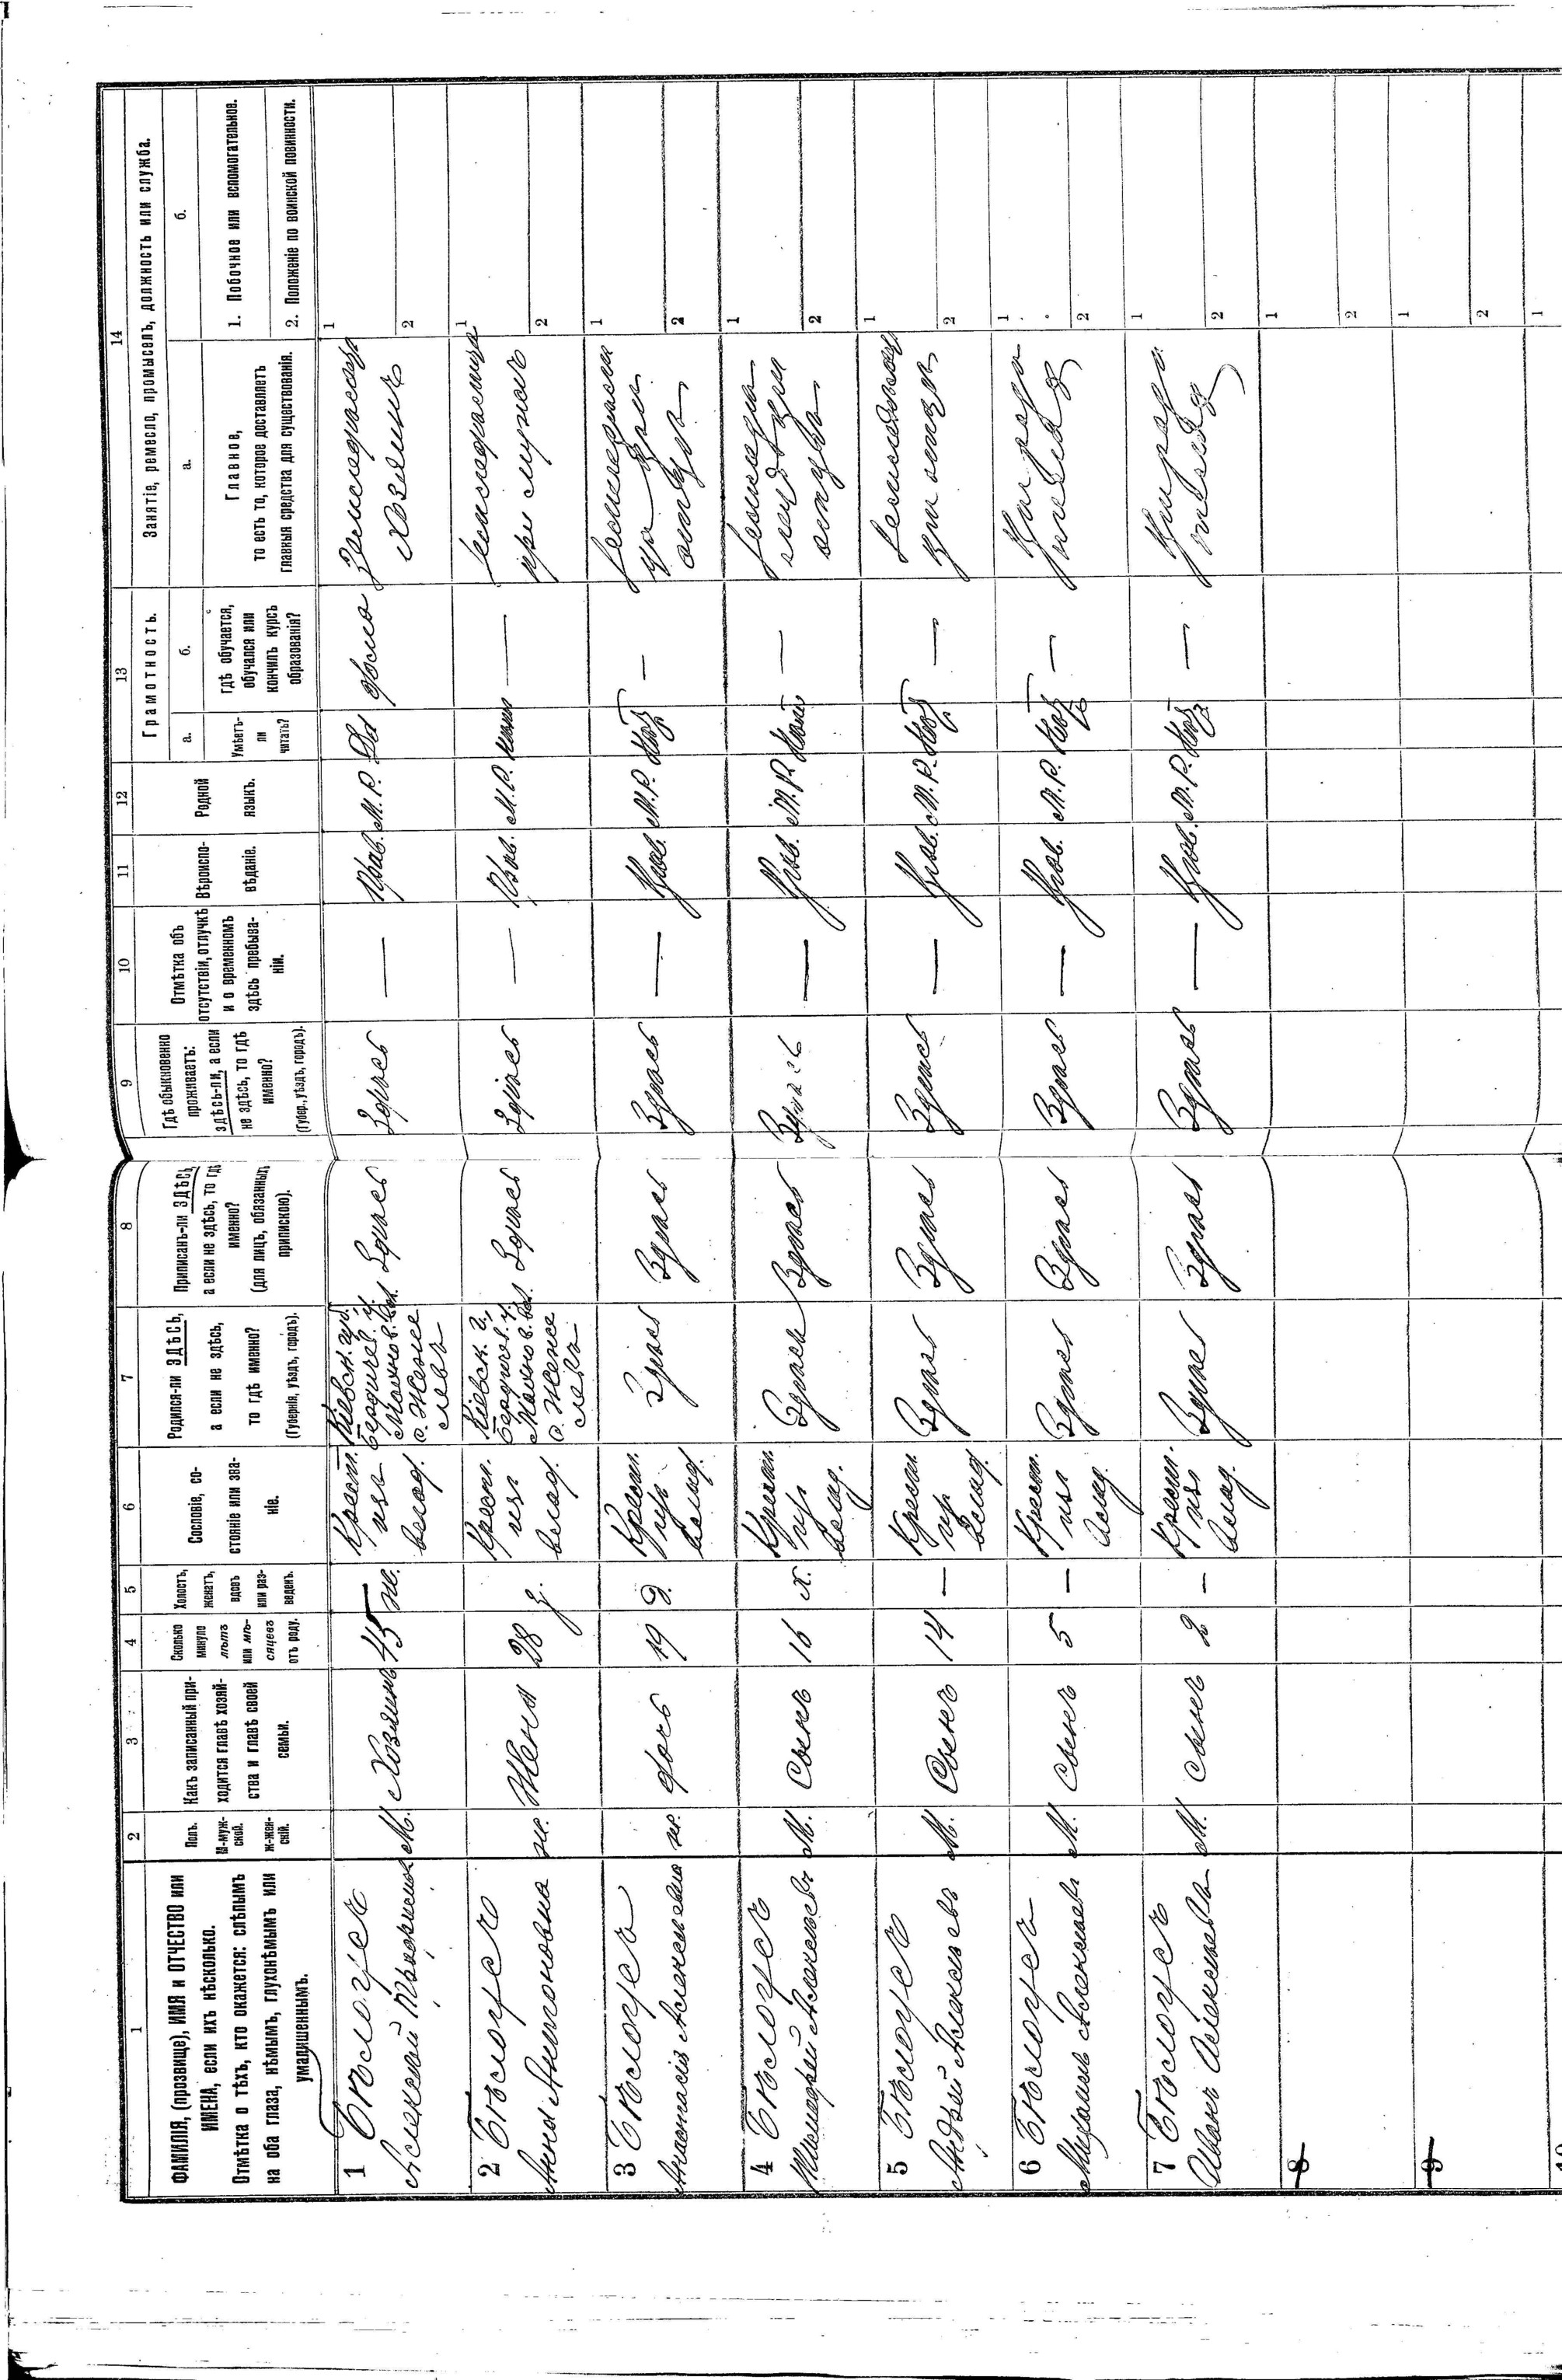 1
ФАМИЛІЯ, (прозвище), ИМЯ и ОТЧЕСТВО или
ИМЕНА, если ихъ нѣсколько.
Отмѣтка о тѣхъ, кто окажется: слѣпымъ
на оба глаза, нѣмымъ, глухонѣмымъ или
умалишеннымъ.
2
Полъ.
М-муж-
ской.
Ж-жен-
скій.
3
Какъ записанный при-
ходится главѣ хозяй-
ства и главѣ своей
семьи.
4
Сколько
минуло
лѣтъ
или мѣ-
сяцевъ
отъ роду.
5
Холостъ,
женатъ,
вдовъ
или раз-
веденъ.
6
Сословіе, со-
стояніе или зва-
ніе.
7
Родился-ли ЗДѢСЬ,
а если не здѣсь,
то гдѣ именно?
(Губернія, уѣздъ, городъ).
8
Приписанъ-ли ЗДѢСЬ,
а если не здѣсь, то гдѣ
именно?
(для лицъ, обязанныхъ
припискою).
9
Гдѣ обыкновенно
проживаетъ:
здѣсь-ли, а если
не здѣсь, то гдѣ
именно?
(Губер., уѣздъ, городъ).
10
Отмѣтка объ
отсутствіи, отлучкѣ
и о временномъ
здѣсь пребыва-
ніи.
11
Вѣроиспо-
вѣданіе.
12
Родной
языкъ.
13
Грамотность.
а.
Умѣетъ-
ли
читать?
б.
гдѣ обучается,
обучался или
кончилъ курсъ
образованія?
14
Занятіе, ремесло, промыселъ, должность или служба.
а.
Главное,
то есть то, которое доставляетъ
главныя средства для существованія.
б.
1. Побочное или вспомогательное.
2. Положеніе по воинской повинности.
1 Бѣлоусъ
Алексѣй
М.
Хозяинъ
45
ж.
Крест.
изъ
влад.
Кіевск. губ.
Бердичев. у.
Махнов. вол.
с. Жеже
левъ
Здѣсь
Здѣсь
—
Прав.
М. Р.
Да
дома
Земледѣлецъ
хозяинъ
1
2
2 Бѣлоусъ
Анна Антоновна
ж.
Жена
28
з.
Крест.
изъ
влад.
Кіевск. г.
Бердичев. у.
Махнов. вол.
с. Жеже
левъ
Здѣсь
Здѣсь
—
Прав.
М. Р.
—
при мужѣ
1
2
3 Бѣлоусъ
Анастасія Алексѣевна
ж.
дочь
19
д.
Крест.
изъ
влад.
Здѣсь
Здѣсь
Здѣсь
—
Прав.
М. Р.
Нѣтъ
—
при
отцѣ
1
2
4 Бѣлоусъ
Тимофей Алексѣевъ
М.
Сынъ
16
х.
Крест.
изъ
влад.
Здѣсь
Здѣсь
Здѣсь
—
Прав.
М. Р.
—
при
отцѣ
1
2
5 Бѣлоусъ
Андрей Алексѣевъ
М.
Сынъ
14
—
Крест.
изъ
влад.
Здѣсь
Здѣсь
Здѣсь
—
Прав.
М. Р.
Нѣтъ
—
при отцѣ
1
2
6 Бѣлоусъ
Михаилъ Алексѣевъ
М.
Сынъ
5
—
Крест.
изъ
влад.
Здѣсь
Здѣсь
Здѣсь
—
Прав.
М. Р.
Нѣтъ
—
При роди
теляхъ
1
2
7 Бѣлоусъ
Иванъ Алексѣевъ
М.
Сынъ
2
—
Крест.
изъ
влад.
Здѣсь
Здѣсь
Здѣсь
—
Прав.
М. Р.
Нѣтъ
—
При роди
теляхъ
1
2
8
1
2
9
1
2
10
1